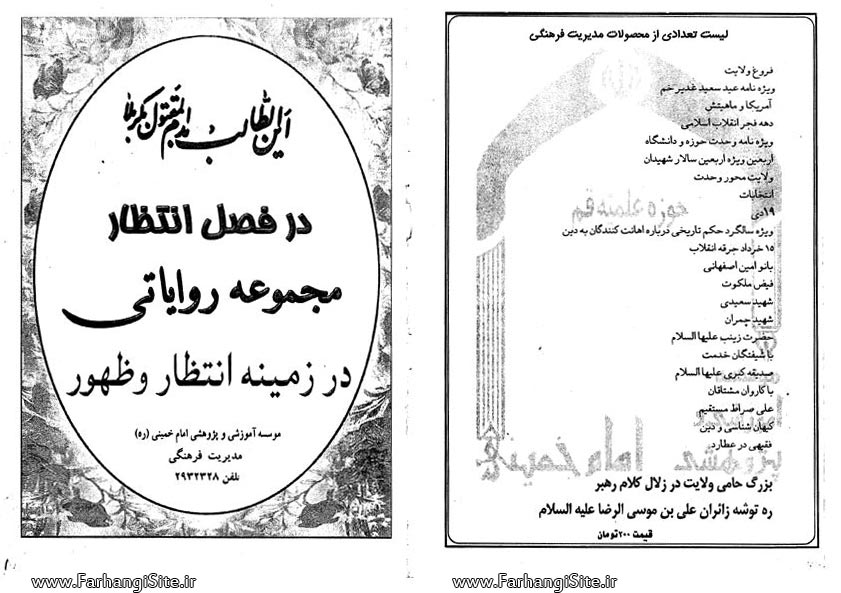 این الطالب بدم المقتول بکربلا
در فصل انتظار
مجموعه روایاتی
در زمینه انتظار و ظهور
موسسه آموزشی و پژوهشی امام خمینی (ره)
مدیریت فرهنگی
تلفن ۲۹۳۲۳۲۸
www.FarhangiSite.ir
لیست تعدادی از محصولات مدیریت فرهنگی
فروغ ولایت
ویژه نامه عید سعید غدیر خم
آمریکا و ماهیتش
دهه فجر انقلاب اسلامی
ویژه نامه وحدت حوزه و دانشگاه
اربعین ویژه اربعین سالار شهیدان
ولایت محور وحدت
انتخابات
۱۹دی
ویژه سالگرد حکم تاریخی درباره اهانت کنندگان به دین
۱۵ خرداد جرقه انقلاب
بانو امین اصفهانی
فیض ملکوت
شهید سعیدی
شهید چمران
حضرت زینب علیها السلام
با شیفتگان خدمت
صدیقه کبری علیها السلام
با کاروان مشتاقان
علی صراط مستقیم
کیهان شناسی و دین
فقیهی در عطارد
بزرگ حامی ولایت در زلال کلام رهبر
ره توشه زائران علی بن موسی الرضا علیه السلام
قیمت ۲۰۰ تومان
حوزه علمیه قم
پژوهشی امام خمینی
www.FarhangiSite.ir